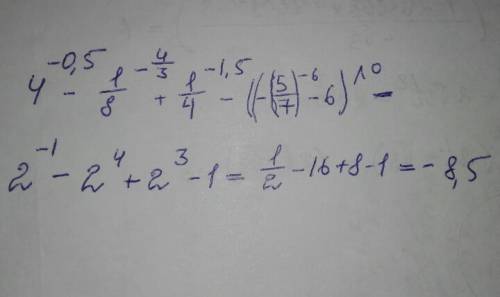 4^{-0,5} - \frac{1}{8}^{-\frac{4}{3}} + \frac{1}{4}^{-1,5} - ((-(\frac{5}{7})^{-6} - 6)^{10} -
2^{-1} - 2^{4} + 2^{3} - 1 = \frac{1}{2} - 16 + 8 - 1 = - 8,5